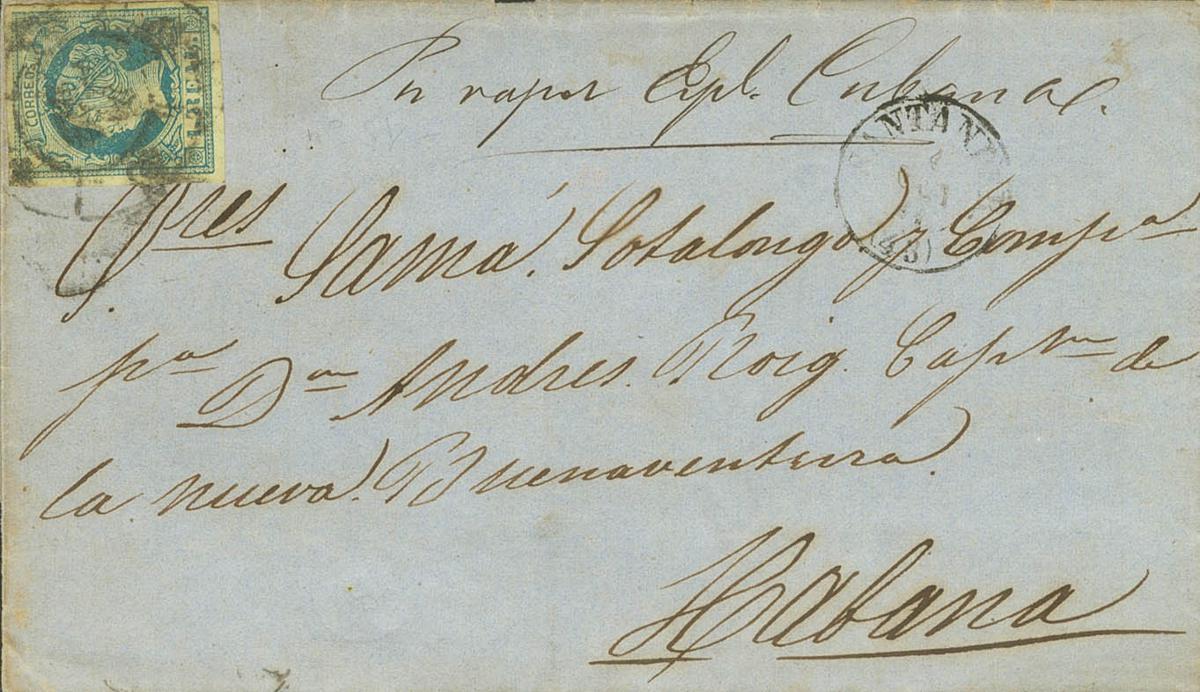 CORREOS
1 REAL
Por vapor Espl. Cubana
SANTANDER
(43)
Sres Samá, Sotolongo y Compª
pª Dn Andres Roig. Captn de
la nueva Buenaventura
Habana